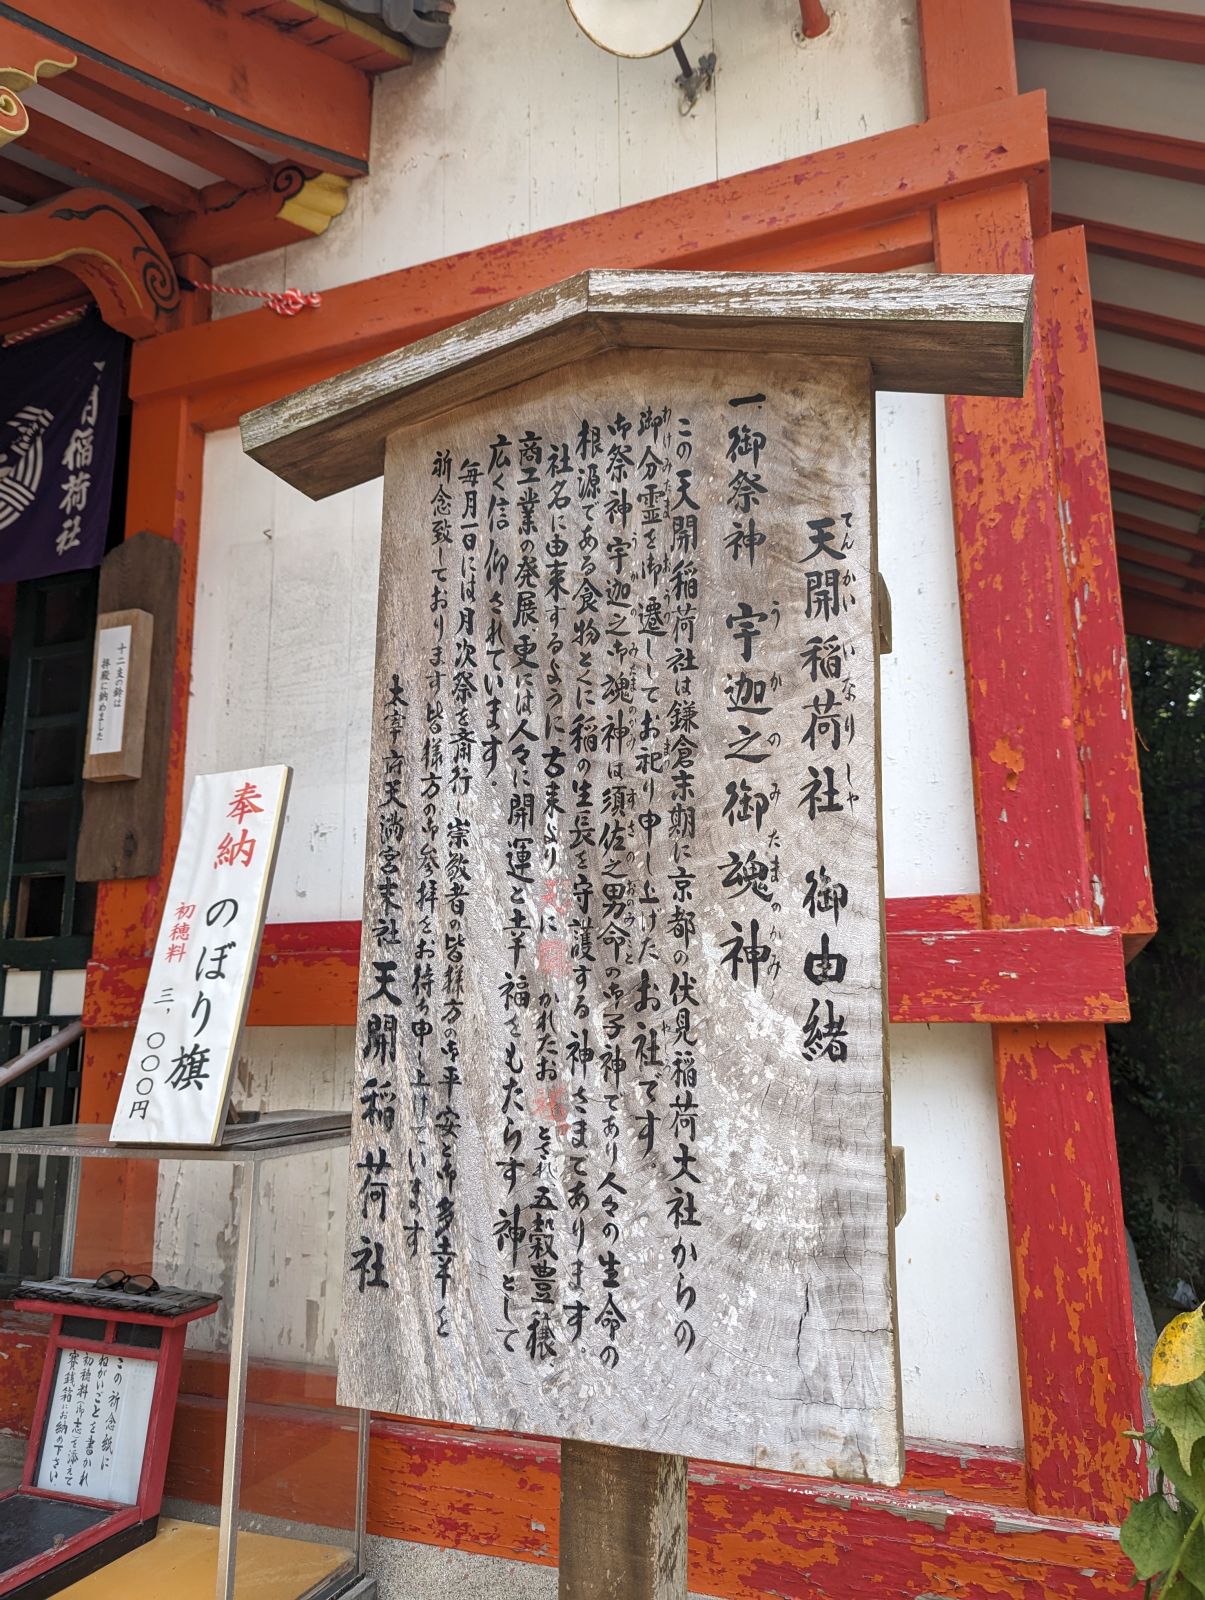 天開稲荷社 御由緒
てんかい いなり しゃ
一、御祭神 宇迦之御魂神
うかのみたまのかみ
この天開稲荷社は鎌倉末期に京都の伏見稲荷大社からの
御分霊を御遷ししてお祀り申し上げたお社です。
わけみたま おうつ まつ やしろ
御祭神宇迦之御魂神は須佐之男命の御子神であり人々の生命の
うかのみたまのかみ すさのおのみこと
根源である食物とくに稲の生長を守護する神さまであります。
社名に由来するように古来より天に開かれたお社とされ五穀豊穣、
商工業の発展、更には人々に開運と幸福をもたらす神として
広く信仰されています。
毎月一日には月次祭を斎行し崇敬者の皆様方の御平安と御多幸を
祈念致しております皆様方の御参拝をお待ち申し上げています
太宰府天満宮末社 天開稲荷社
月稲荷社
十二支の鈴は
拝殿に納めました
奉納 のぼり旗
初穂料 三、〇〇〇円
この祈念紙に
ねがいごとを書かれ
初穂料(御志)を添えて
賽銭箱にお納め下さい